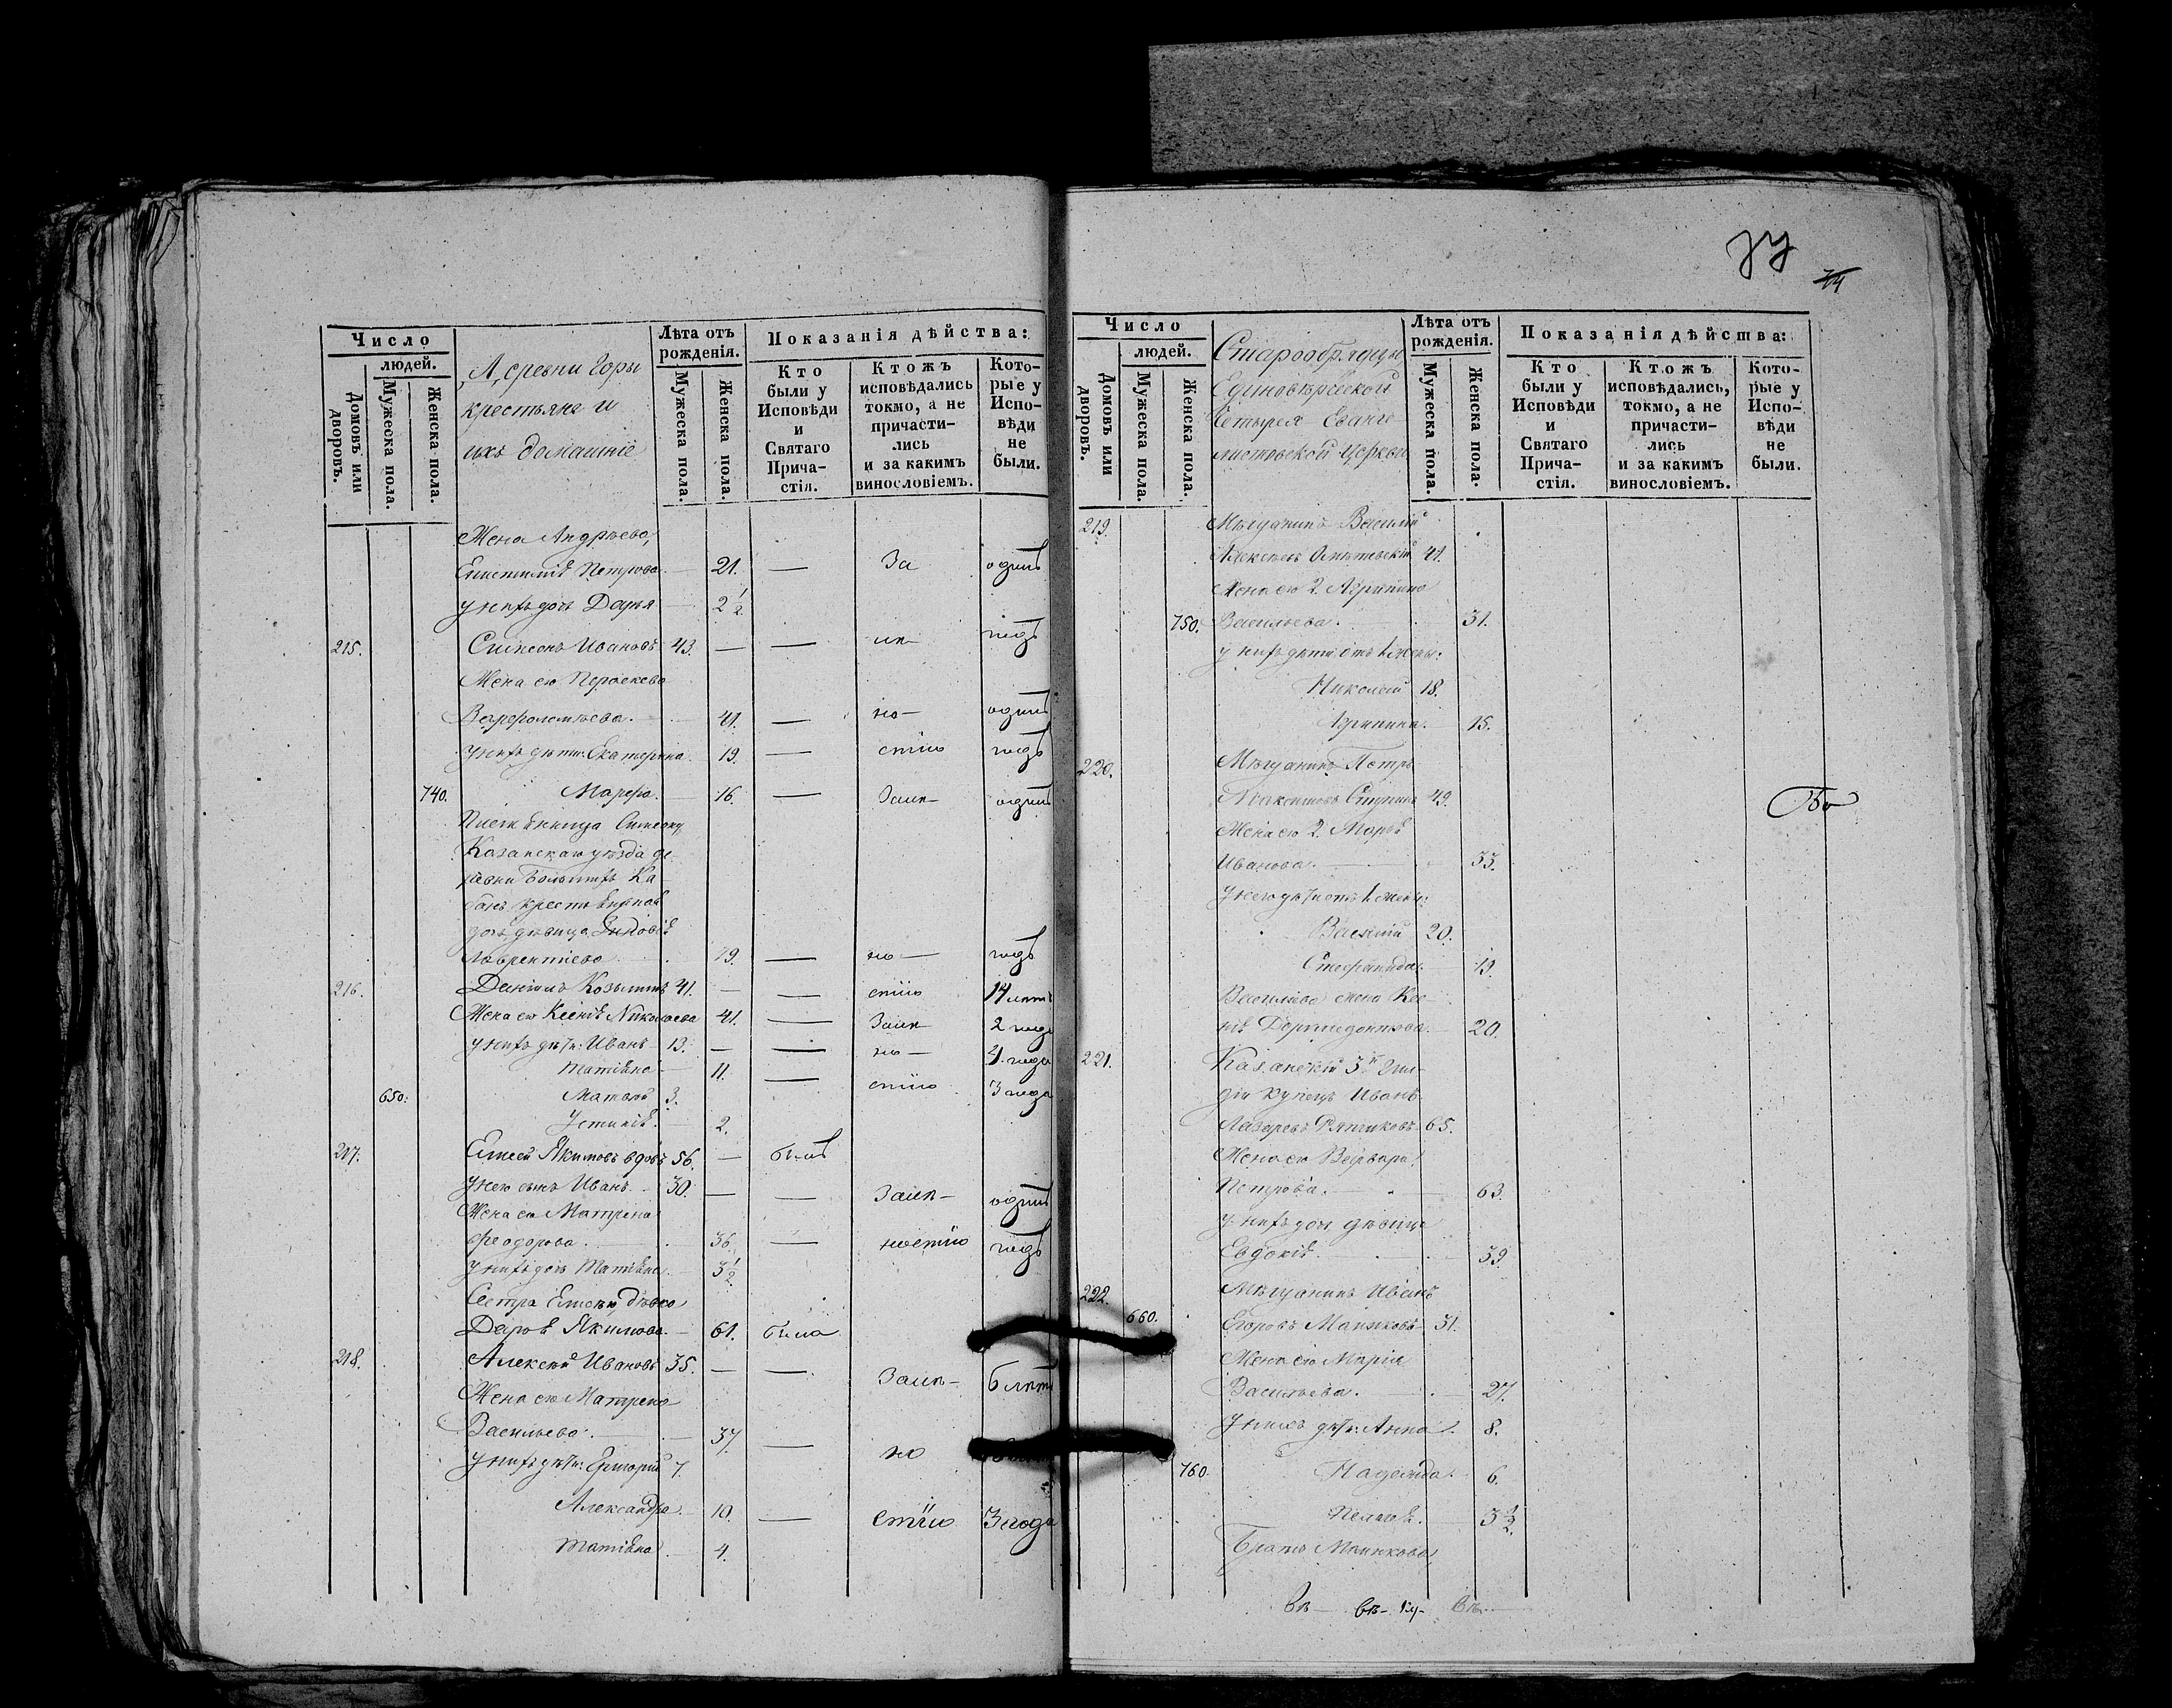 77
74
Число
людей.
Домовъ или дворовъ.
Мужеска пола.
Женска пола.
Деревни Горы
крестьяне и
ихъ домашніе
Лѣта отъ рожденія.
Мужеска пола.
Женска пола.
Показанія дѣйства:
Кто были у Исповѣди и Святаго Прича-стія.
Ктожъ исповѣдались токмо, а не причасти-лись и за какимъ винословіемъ.
Кото-рые у Испо-вѣди не были.
Жена Андреева,
Петрова 21. — За одинъ
у нихъ дочь Дарья 2 1/2
215. Симеонъ Ивановъ 43. — — ик годъ
Жена его
Варфоломѣева. 41. — но одинъ
у нихъ дѣти: Екатерина 19. — стію годъ
740. Марфа. 16. — Заик одинъ
Симеону
Казанскаго уѣзда де
ревни Большихъ Ка
банъ
дочь дѣвица
Лаврентіева 19. — но — годъ
216. Даніилъ Козьминъ 41. — — стію 14 лѣтъ
Жена его Ксенія Николаева 41. — Заик 2 года
у нихъ дѣти: Иванъ 13. — — но — 4 года
Татіана 11. — стію 3 года
650. Матвѣй 3.
Устинія. 2.
217. Елисей Якимовъ вдовъ 56. — былъ
у него сынъ Иванъ 30. — — Заик — одинъ
Жена его Матрена
Феодорова. 36. — ностію годъ
у нихъ дочь Татіана 3 1/2
Сестра дѣвка
Дарья Якимова. 61. была
218. Алексѣй Ивановъ 35. — — Заик — 6 лѣтъ
Жена его Матрена
Васильева. 37. — но
у нихъ дѣти: Григорій 7.
Александра. 10. — стію 3 года
Татіана 4.
Число
людей.
Домовъ или дворовъ.
Мужеска пола.
Женска пола.
Старообрядцы
Единовѣрческой
Четырех Еванге
листовской Церкви
Лѣта отъ рожденія.
Мужеска пола.
Женска пола.
Показанія дѣйства:
Кто были у Исповѣди и Святаго Прича-стія.
Ктожъ исповѣдались, токмо, а не причасти-лись и за какимъ винословіемъ.
Кото-рые у Испо-вѣди не были.
219. Мѣщанинъ Василій
Алексѣевъ 41.
Жена его 2. Агрипина
750. Васильева. 31.
у нихъ дѣти отъ 1 жены:
Николай 18.
Агрипина. 15.
220. Мѣщанинъ Петръ
Максимовъ 49.
Жена его 2. Марья
Иванова. 33.
У него дѣти отъ 1 жены:
Василій 20.
Стефанида. 19.
Васильева жена Ксе
нія 20.
221. Казанскій 3й гил
діи купецъ Иванъ
Лазаревъ 65.
Жена его Варвара
Петрова. 63.
У нихъ дочь дѣвица
Евдокія. 39.
222. Мѣщанинъ Иванъ
660. Егоровъ 31.
Жена его Марія
Васильева. 27.
У нихъ дѣти: Анна. 8.
760. Надежда. 6.
Пелагея. 3 1/2.
Братъ